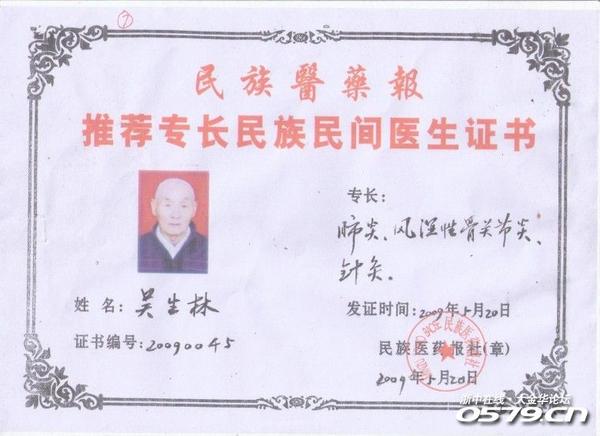 7
民族醫藥報
推荐专长民族民间医生证书
专长：
肺炎、风湿性骨关节炎、
针灸。
姓名：吴生林
发证时间：2009年5月20日
证书编号：20090045
民族医药报社(章)
2009年5月20日
浙中在线·大金华论坛
0579.CN